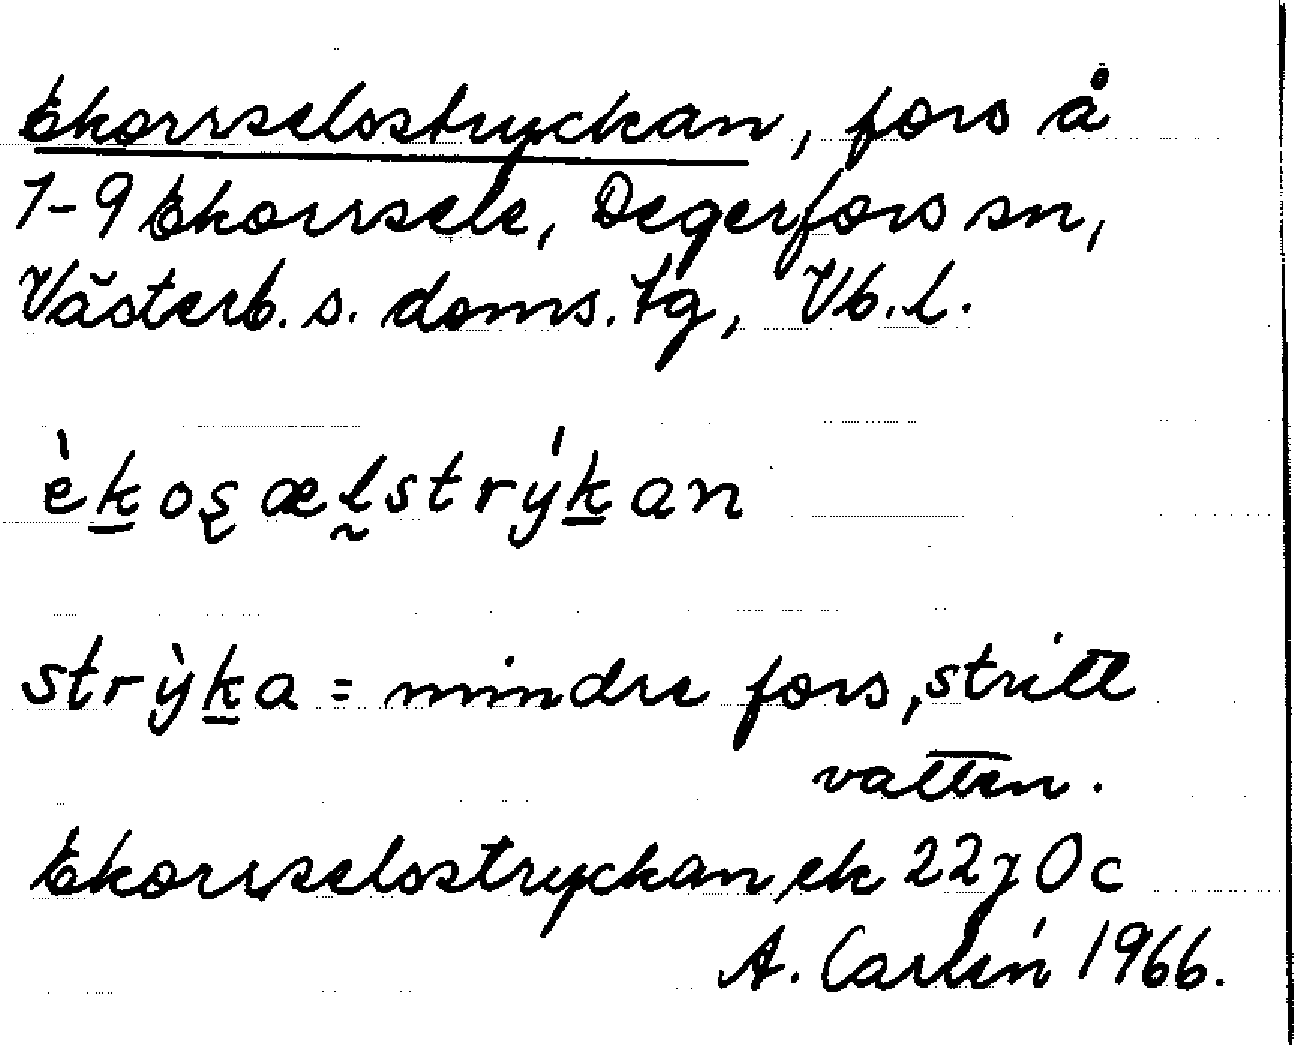 Ekorrselsstryckan, fors å
1-9 Ekorrsele, Degerfors sn,
Västerb. s. doms. tg, Vb. l.
èk̲os̨æl̰strýk̲an
strỳk̲a = mindre fors, stritt
vatten.
Ekorrselsstryckan, ek 22 j 0 c
A. Carlén 1966.